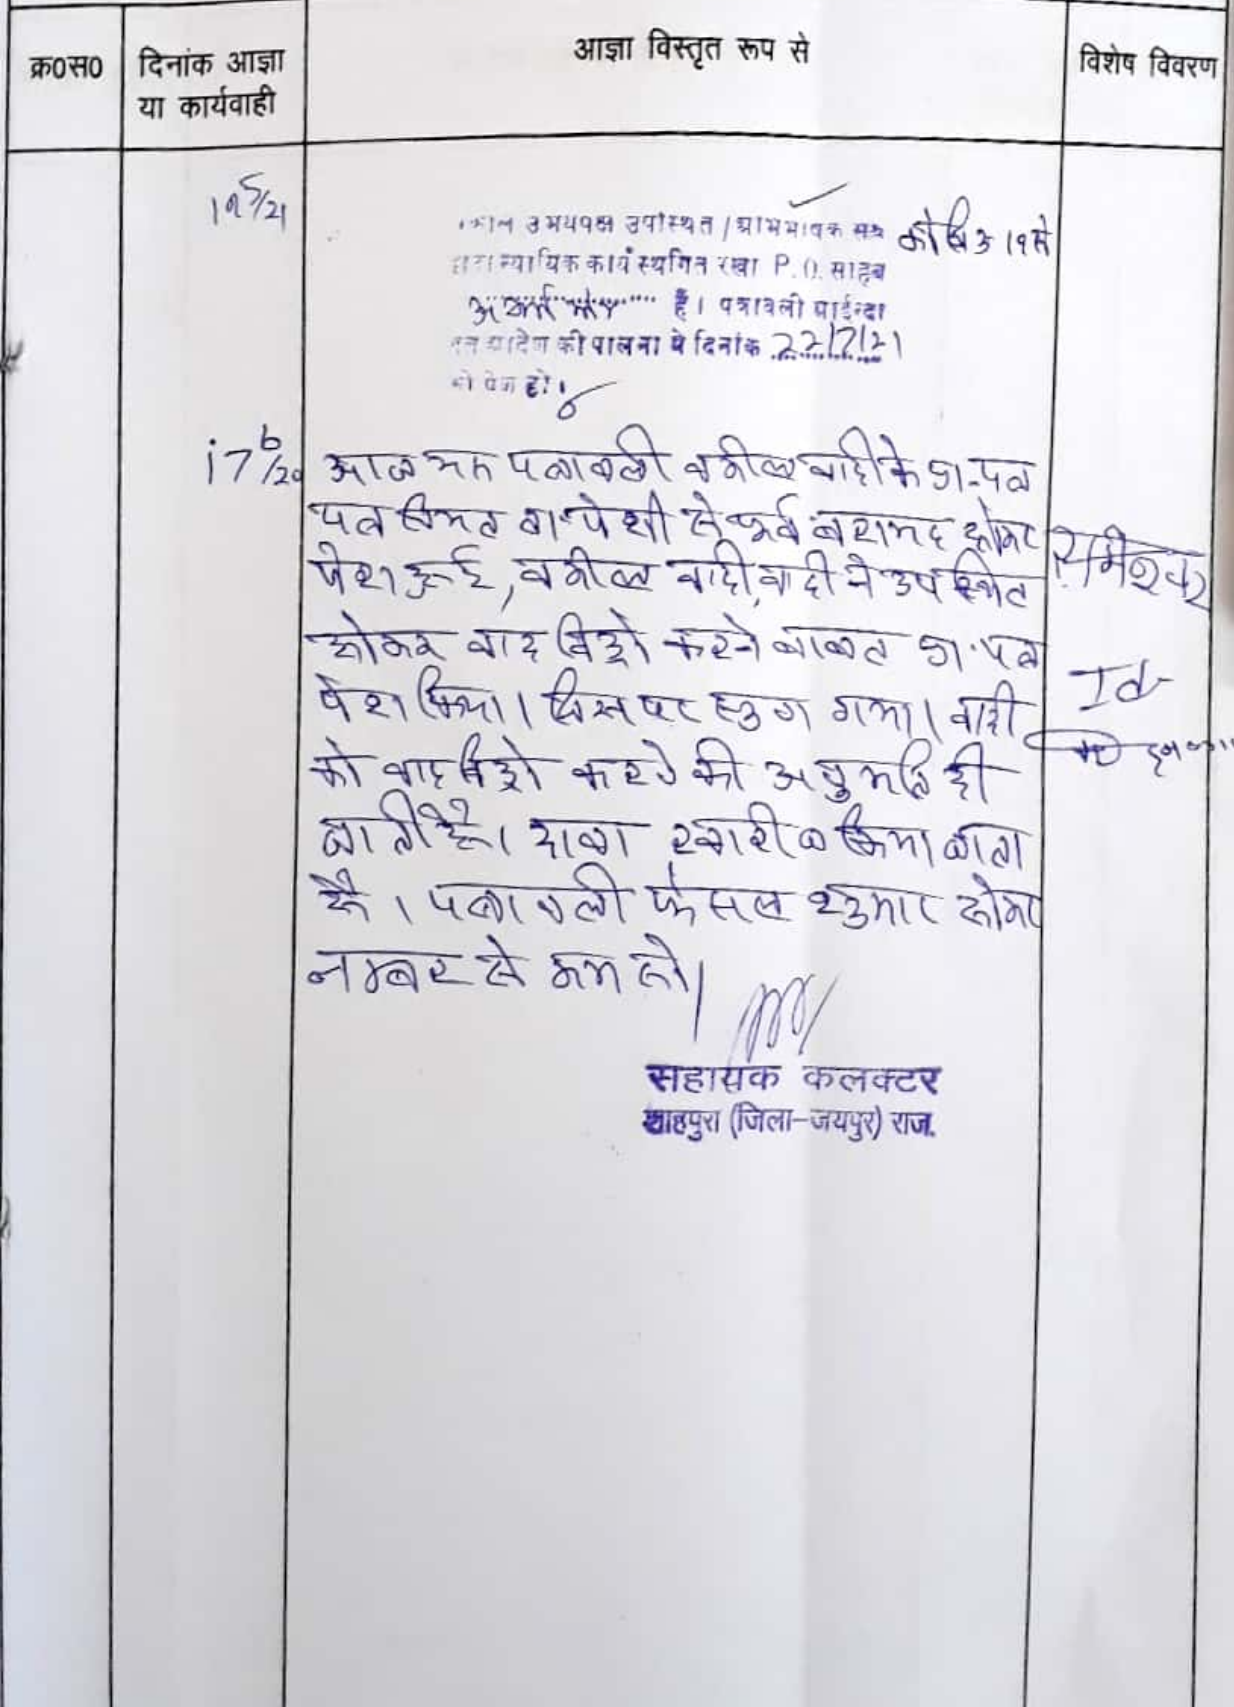 क्र०स०
दिनांक आज्ञा
या कार्यवाही
आज्ञा विस्तृत रूप से
विशेष विवरण
19 5/21
उभयपक्ष उपस्थित / अभिभाषक संघ कोविड 19 से
द्वारा न्यायिक कार्य स्थगित रखा P.O. साहब
है। पत्रावली आईन्दा
आदेश की पालना मे दिनांक 22/7/21
को पेश हो।
17 6/20 आज यह पत्रावली वकील वादी के प्रा.पत्र
पत्र ता.पेशी से पूर्व बरामद होकर
पेश हुई, वकील वादी, वादी ने उपस्थित
होकर वाद विड्रो करने बाबत प्रा.पत्र
पेश किया। जिस पर सुना गया। वादी
को वाद विड्रो करने की अनुमति दी
जाती है। दावा खारीज किया जाता
है। पत्रावली फैसल शुमार होकर
नम्बर से कम हो।
रामेश्वर
Id-
सहायक कलक्टर
शाहपुरा (जिला-जयपुर) राज.